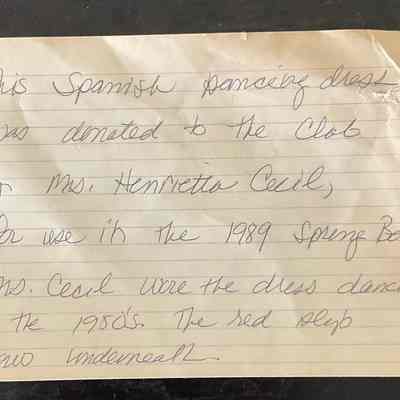 his Spanish Dancing dress
was donated to the Club
Mrs. Henrietta Cecil,
for use in the 1989 Spring Ba
Mrs. Cecil wore the dress danci
the 1950's. The red slip
underneath.